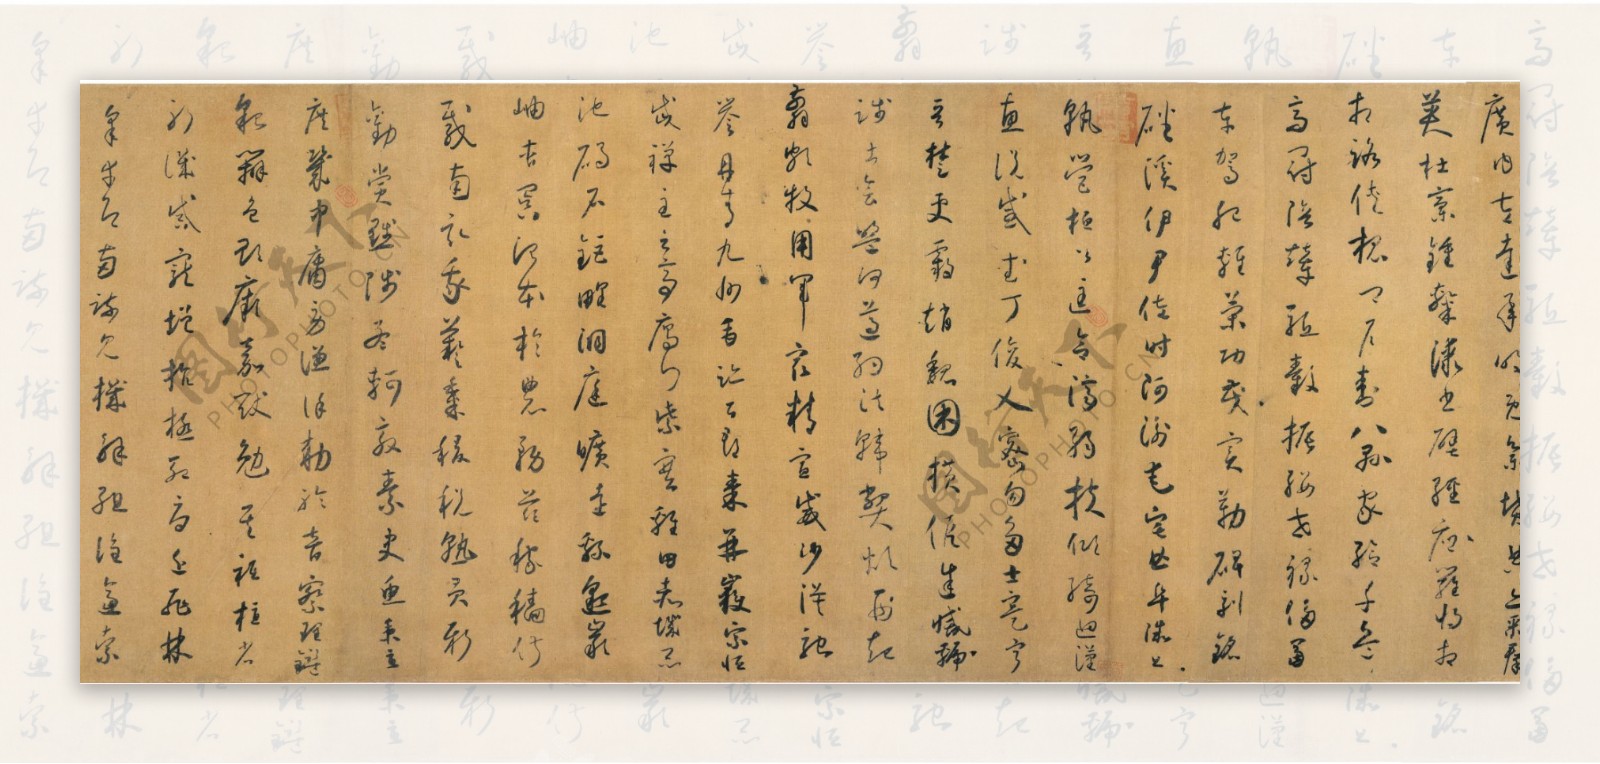 廣内左達承明既集墳典亦聚群
英杜稾鍾隸漆書壁經府羅將相
相路俠槐卿户封八縣家給千兵
高冠陪輦驅轂振纓世祿侈富
車駕肥輕策功茂實勒碑刻銘
磻溪伊尹佐時阿衡奄宅曲阜微旦
孰營桓公匡合濟弱扶傾綺迴漢
惠說感武丁俊乂密勿多士寔寧
晉楚更霸趙魏困橫假途滅虢
踐土會盟何遵約法韓弊煩刑起
翦頗牧用軍最精宣威沙漠馳
譽丹青九州禹跡百郡秦并嶽宗恒
岱禪主云亭雁門紫塞雞田赤城昆
池碣石鉅野洞庭曠遠緜邈巖
岫杳冥治本於農務茲稼穡俶
載南畝我藝黍稷稅熟貢新
勸賞黜陟孟軻敦素史魚秉直
庶幾中庸勞謙謹敕聆音察理鑑
貌辯色貽厥嘉猷勉其祗植省
躬譏誡寵增抗極殆辱近恥林
皋幸即兩疏見機解組誰逼索